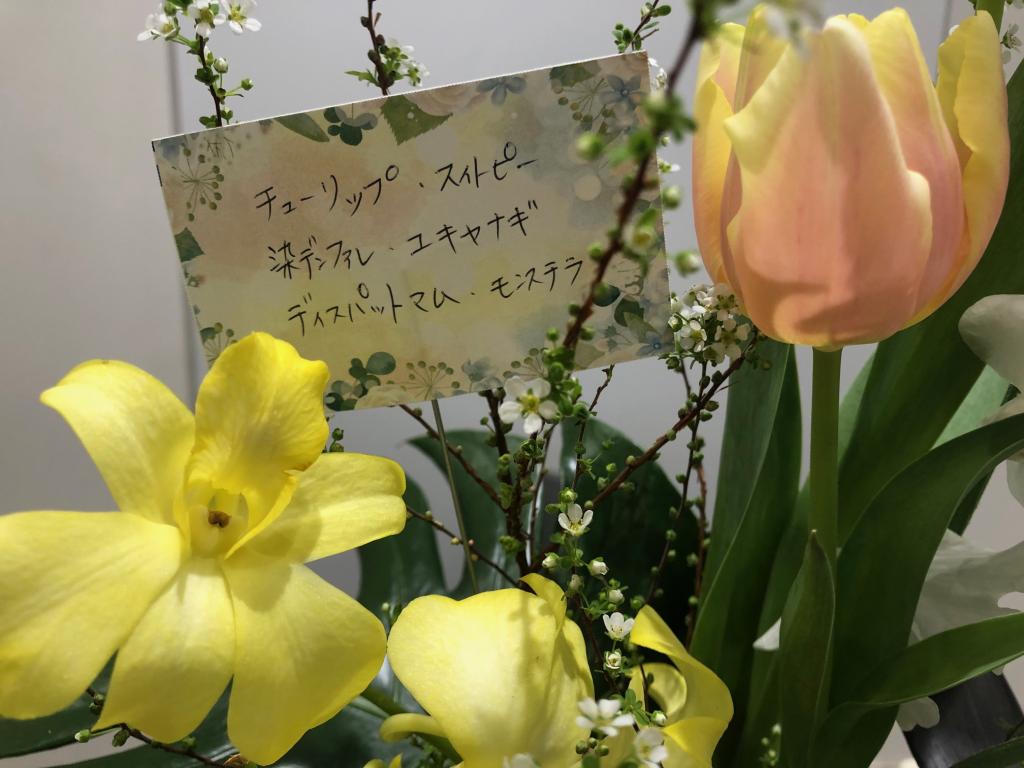 チューリップ・スイトピー
染デンファレ・ユキヤナギ
ディスパットマム・モンステラ